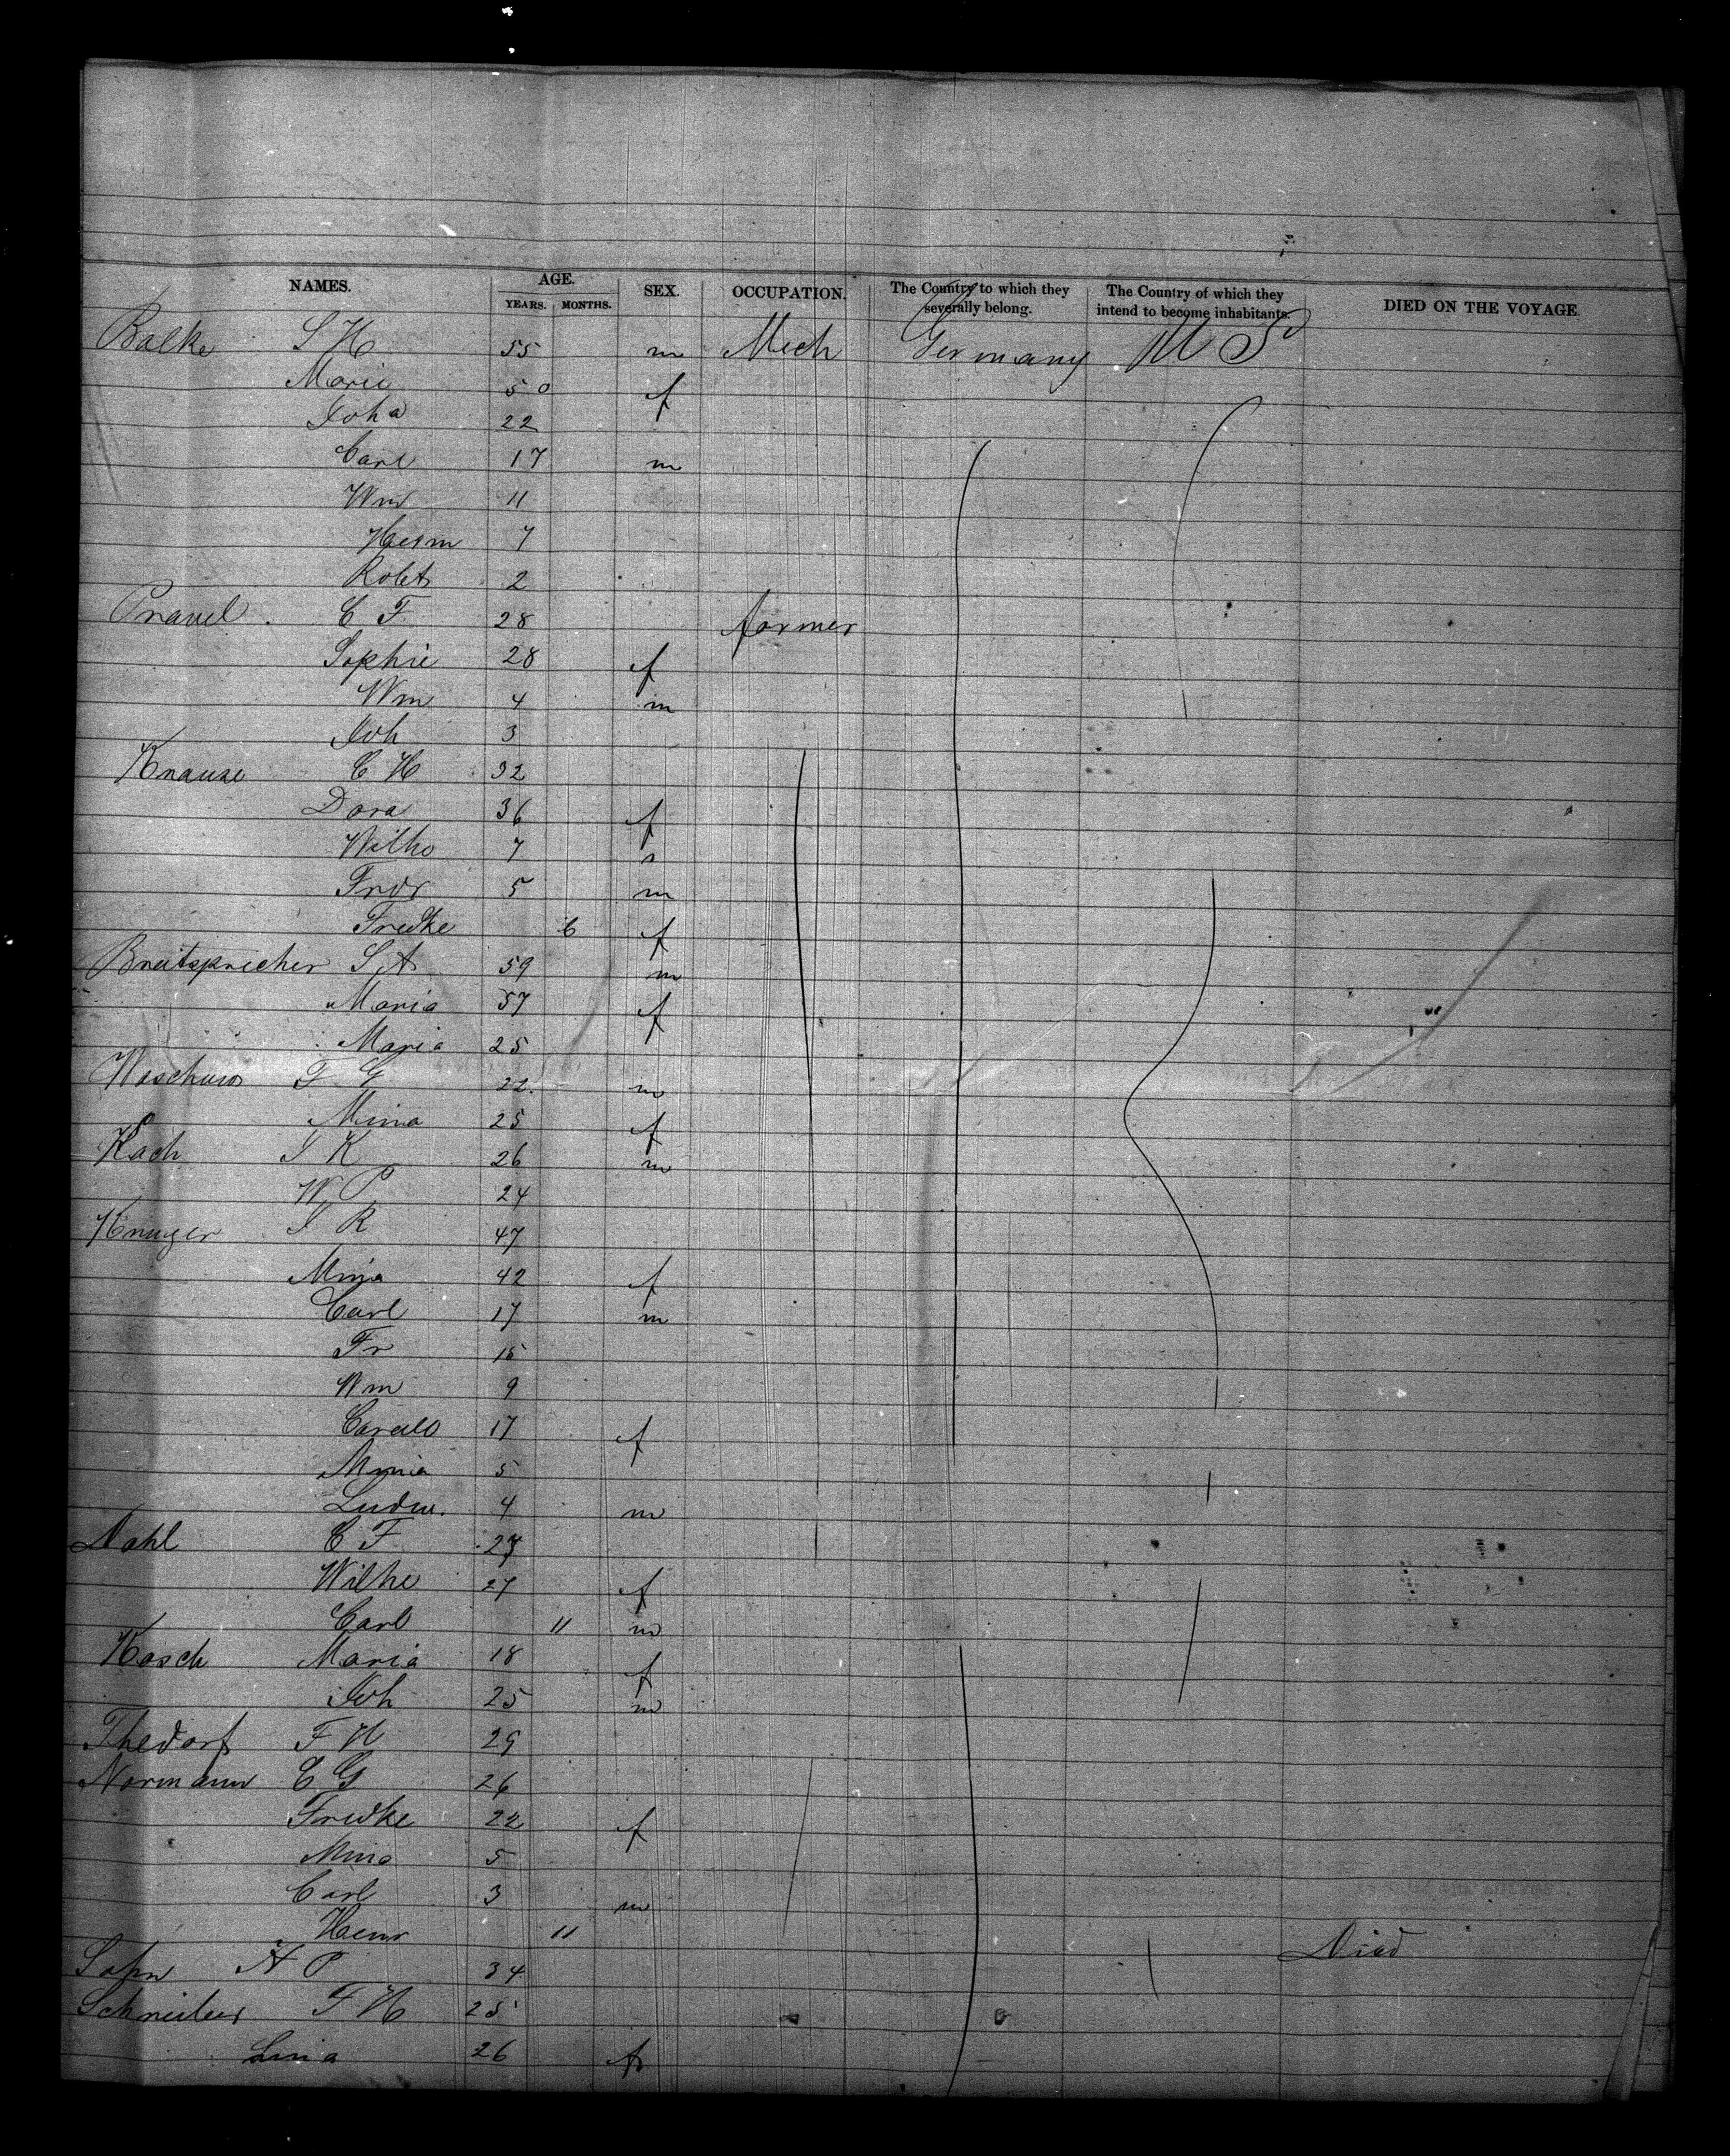 NAMES. AGE. YEARS. MONTHS. SEX. OCCUPATION. The Country to which they severally belong. The Country of which they intend to become inhabitants. DIED ON THE VOYAGE.
Balke S H 55 m Mech Germany U S
Marie 50 f
Joha 22
Carl 17 m
Wm 11
Herm 7
Robt 2
Pravel. C F 28 farmer
Sophie 28 f
Wm 4 m
Joh 3
Krause C H 32
Dora 36 f
Wilho 7
Fridr 5 m
Fredke 6 f
Breitsprecher S A 59 m
Maria 57 f
Maria 25
F G 22. m
Mina 25 f
Kach J K 26 m
W P 24
Kruger J R 47
Mina 42 f
Carl 17 m
Fr 15
Wm 9
17 f
Minia 5
Ludw. 4 m
Dahl C F 27
Wilhe 27 f
Carl 11 m
Kosch Maria 18 f
Joh 25 m
Thedorf F H 29
Normann C G 26
Fredke 22 f
Mina 5
Carl 3 m
Henr 11 Died
A P 34
Schreiber F H 25
Lina 26 f